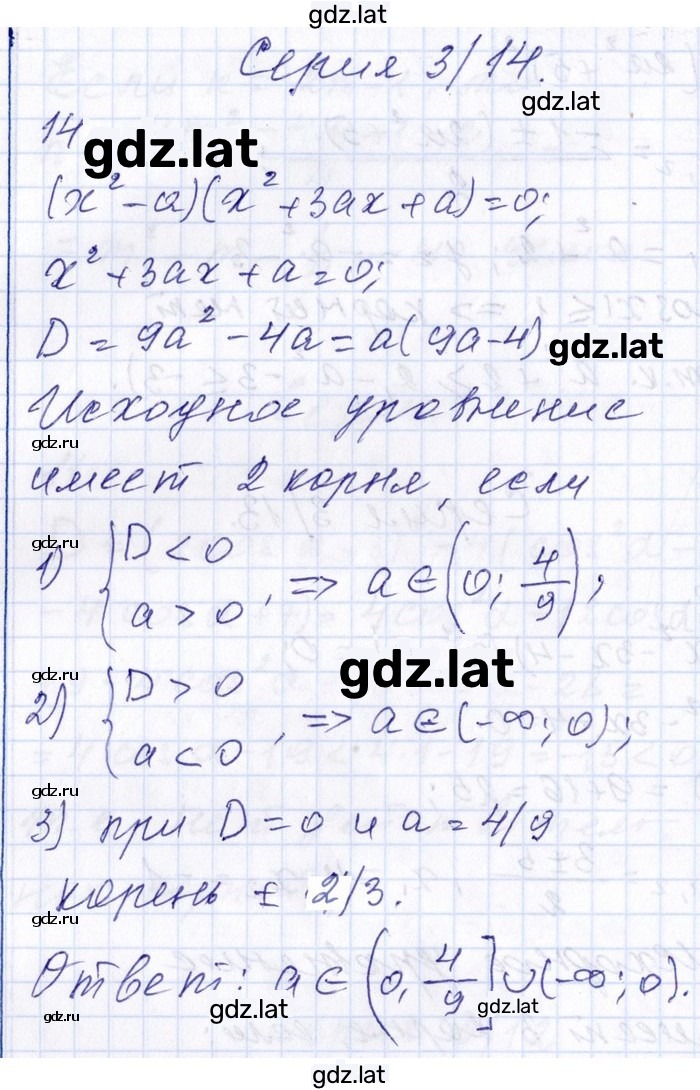 gdz.lat
Серия 3/14.
gdz.lat
14
gdz.lat
(x² - a)(x² + 3ax + a) = 0;
x² + 3ax + a = 0;
D = 9a² - 4a = a(9a - 4)
gdz.lat
Исходное уравнение
gdz.ru
имеет 2 корня, если
gdz.ru
1) { D < 0
a > 0 , => a ∈ (0; 4/9),
gdz.lat
gdz.ru
2) { D > 0
a < 0 , => a ∈ (-∞; 0);
gdz.ru
3) при D = 0 и a = 4/9
корень ± 2/3.
gdz.ru
Ответ: a ∈ (0, 4/9] ∪ (-∞; 0).
gdz.ru
gdz.lat
gdz.lat
gdz.lat